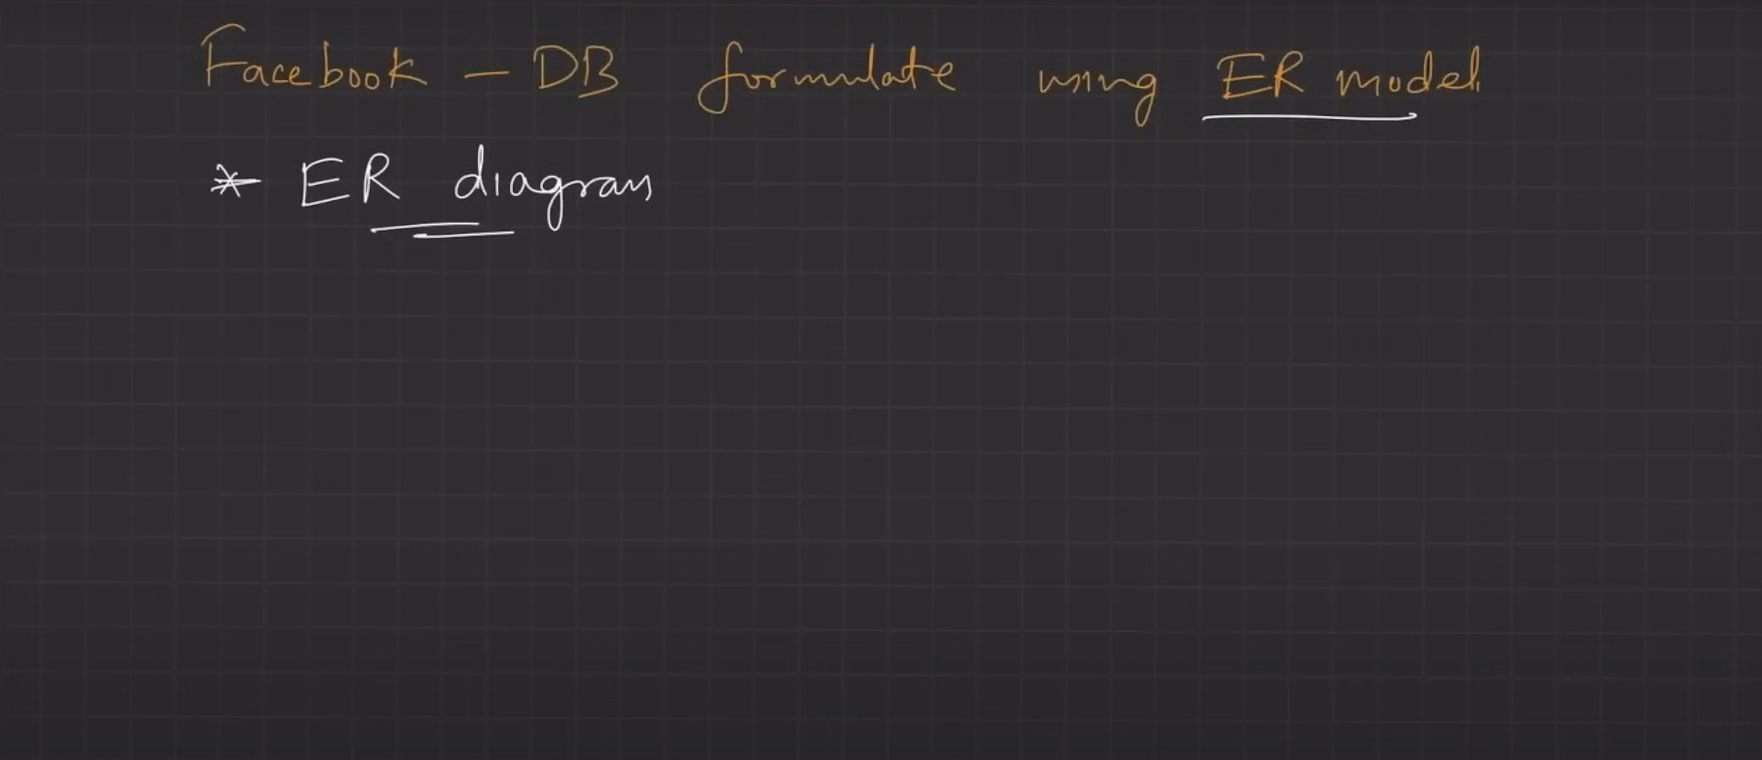 Facebook - DB formulate using ER model
* ER diagram